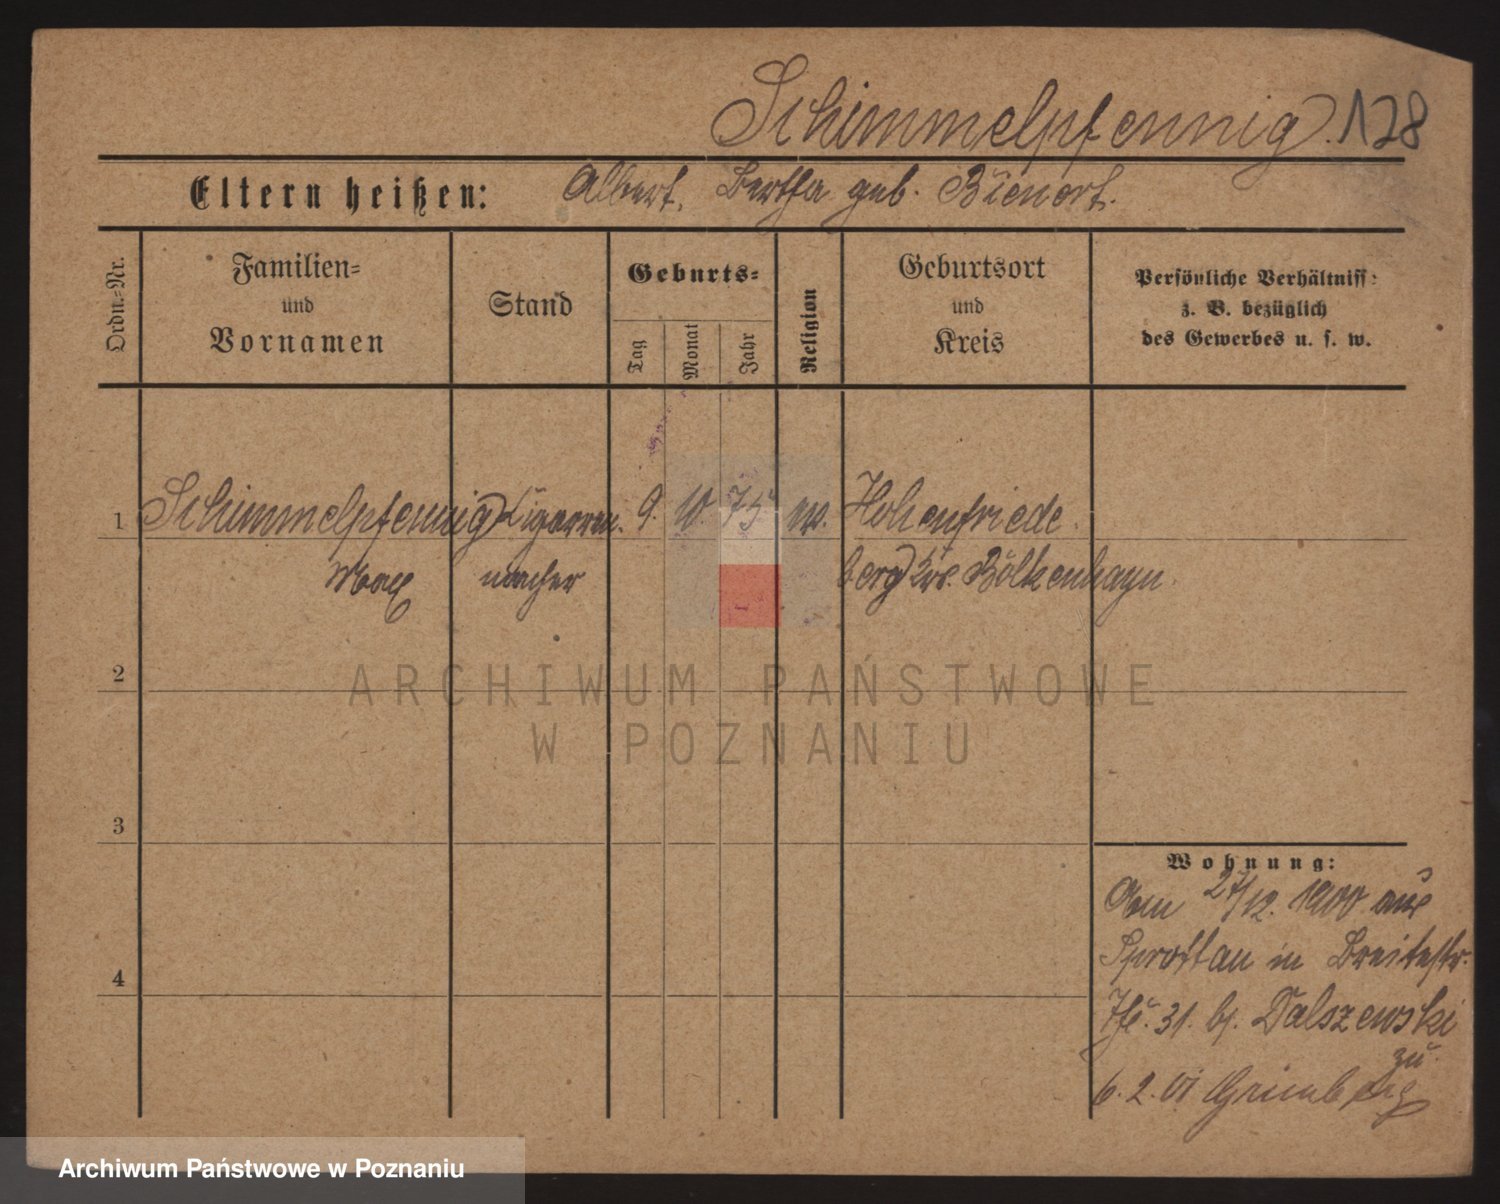 Schimmelpfennig. 128
Eltern heißen: Albert, Bertha geb. Bienert.
Ordn.=Nr.
Familien=
und
Vornamen
Stand
Geburts=
Tag
Monat
Jahr
Religion
Geburtsort
und
Kreis
Persönliche Verhältniss:
z. B. bezüglich
des Gewerbes u. s. w.
1 Schimmelpfennig Cigarren. 9. 10. 75 Hohenfriede
Max macher berg Krs. Bölkenhayn.
2
ARCHIWUM PAŃSTWOWE
W POZNANIU
3
Wohnung:
Am 27/12. 1900 aus
Sprottau in Breitestr.
31. bj. Dalszewski
zu
6. 2. 01 Grünberg
4
Archiwum Państwowe w Poznaniu